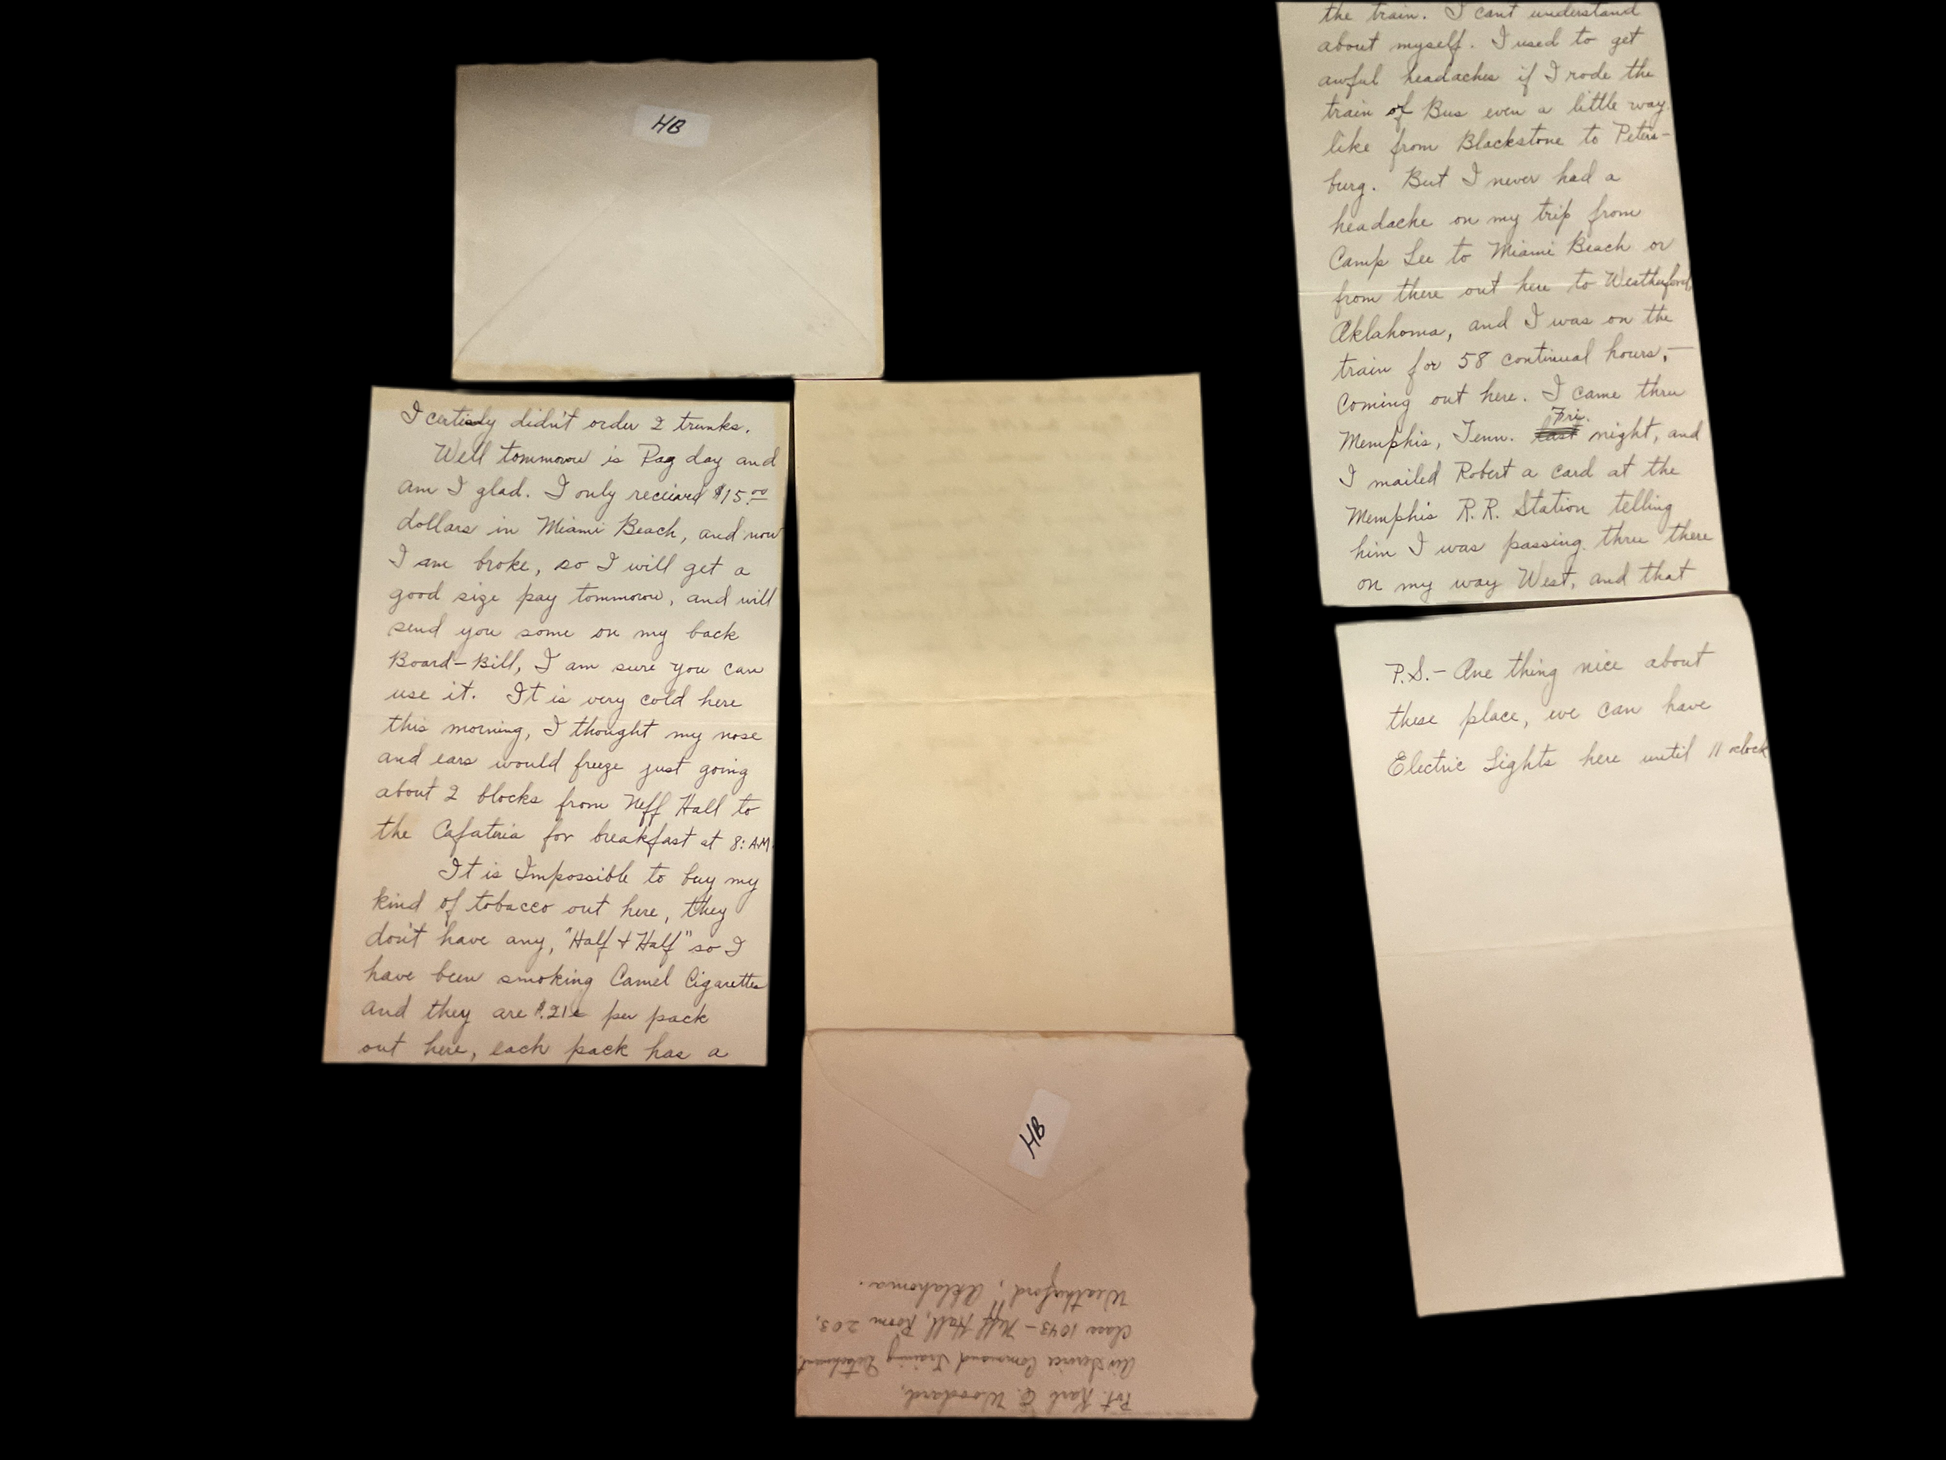 HB
I certisly didn't order 2 trunks.
Well tommorow is Pay day and
am I glad. I only recieved $15.00
dollars in Miami Beach, and now
I am broke, so I will get a
good size pay tommorow, and will
send you some on my back
Board-Bill, I am sure you can
use it. It is very cold here
this morning, I thought my nose
and ears would freeze just going
about 2 blocks from Neff Hall to
the Cafateria for breakfast at 8: A.M.
It is Impossible to buy my
kind of tobacco out here, they
don't have any, "Half + Half" so I
have been smoking Camel Cigarettes
and they are $.21¢ per pack
out here, each pack has a
HB
Pvt. Karl E. Woodard,
Air Service Command Training Detachment.
Class 1043 - Neff Hall, Room 203,
Weatherford, Oklahoma.
the train. I cant understand
about myself. I used to get
awful headaches if I rode the
train of Bus even a little way
like from Blackstone to Peters-
burg. But I never had a
headache on my trip from
Camp Lee to Miami Beach or
from there out here to Weatherford,
Oklahoma, and I was on the
train for 58 continual hours,-
Coming out here. I came thru
Memphis, Tenn. Fri. night, and
I mailed Robert a card at the
Memphis R.R. Station telling
him I was passing thru there
on my way West, and that
P.S.- One thing nice about
these place, we can have
Electric Lights here until 11 oclock